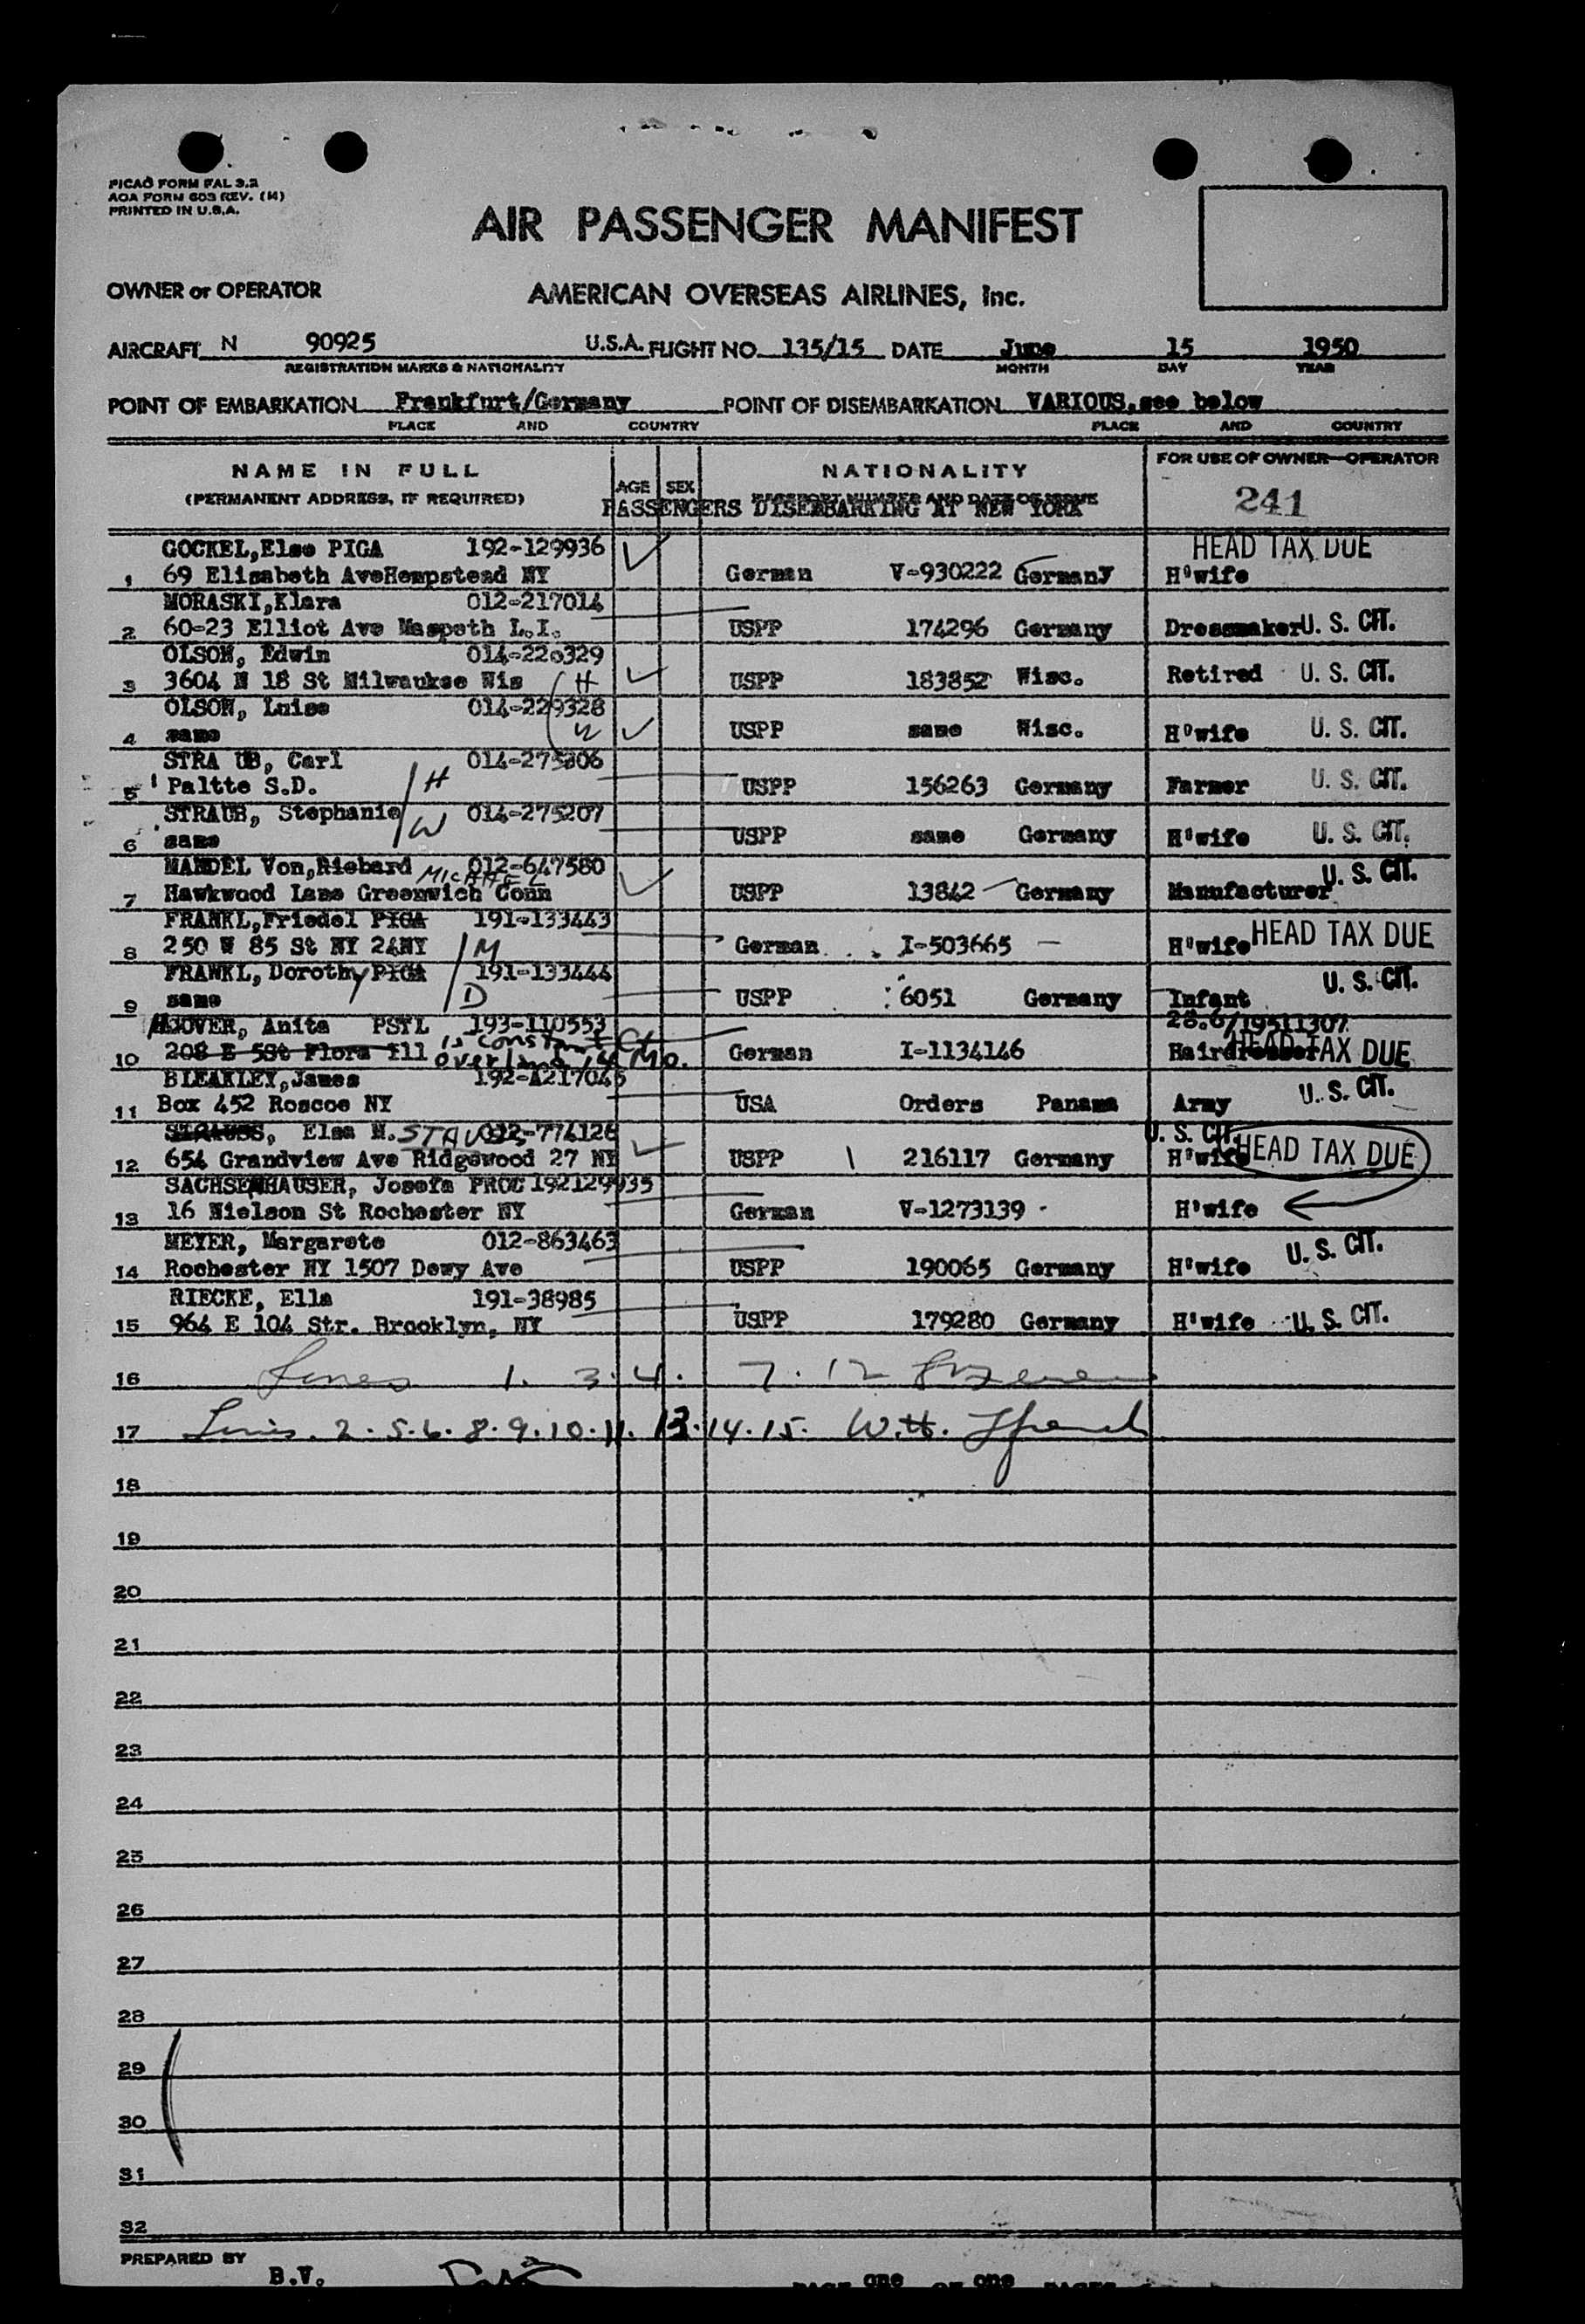 PICAO FORM FAL 3.2
AOA FORM 603 REV. (M)
PRINTED IN U.S.A.
AIR PASSENGER MANIFEST
OWNER or OPERATOR AMERICAN OVERSEAS AIRLINES, Inc.
AIRCRAFT N 90925 U.S.A. FLIGHT NO. 135/15 DATE June 15 1950
REGISTRATION MARKS & NATIONALITY MONTH DAY YEAR
POINT OF EMBARKATION Frankfurt/Germany POINT OF DISEMBARKATION VARIOUS,see below
PLACE AND COUNTRY PLACE AND COUNTRY
NAME IN FULL NATIONALITY FOR USE OF OWNER-OPERATOR
(PERMANENT ADDRESS, IF REQUIRED) AGE SEX PASSPORT NUMBER AND DATE OF ISSUE 241
PASSENGERS DISEMBARKING AT NEW YORK
GOCKEL,Else PIGA 192-129936 HEAD TAX DUE
1 69 Elisabeth AveHempstead NY German V-930222 Germany H'wife
MORASKI,Klara 012-217014
2 60-23 Elliot Ave Maspeth L.I. USPP 174296 Germany Dressmaker U. S. CIT.
OLSON, Edwin 014-220329
3 3604 N 18 St Milwaukee Wis H USPP 183852 Wisc. Retired U. S. CIT.
OLSON, Luise 014-229328
4 same W USPP same Wisc. H'wife U. S. CIT.
STRA UB, Carl 014-275206
5 Paltte S.D. H USPP 156263 Germany Farmer U. S. CIT.
STRAUB, Stephanie 014-275207
6 same W USPP same Germany H'wife U. S. CIT.
MANDEL Von,Riebard MICHAEL 012-647580
7 Hawkwood Lane Greenwich Conn USPP 13842 Germany Manufacturer U. S. CIT.
FRANKL,Friedel PIGA 191-133443
8 250 W 85 St NY 24NY M German I-503665 H'wife HEAD TAX DUE
FRANKL, Dorothy PIGA 191-133444
9 same D USPP 6051 Germany Infant U. S. CIT.
HOOVER, Anita PSTL 193-110553
10 208 E 5St Flora Ill 15 Constant Ct Overland 14 Mo. German I-1134146 Hairdresser HEAD TAX DUE
BLEAKLEY,James 192-A217045
11 Box 452 Roscoe NY USA Orders Panama Army U. S. CIT.
STRAUSS, Elsa M. 012-774126 U. S. CIT.
12 654 Grandview Ave Ridgewood 27 NY USPP 216117 Germany H'wife HEAD TAX DUE
SACHSENHAUSER, Josefa PROC 192129935
13 16 Nielson St Rochester NY German V-1273139 H'wife
MEYER, Margarete 012-863463
14 Rochester NY 1507 Dewy Ave USPP 190065 Germany H'wife U. S. CIT.
RIECKE, Ella 191-38985
15 964 E 104 Str. Brooklyn, NY USPP 179280 Germany H'wife U. S. CIT.
16 Lines 1. 3. 4. 7. 12
17 Lines. 2. 5. 6. 8. 9. 10. 11. 13. 14. 15. W.H.
18
19
20
21
22
23
24
25
26
27
28
29
30
31
32
PREPARED BY
B.V.
PAGE one OF one PAGES